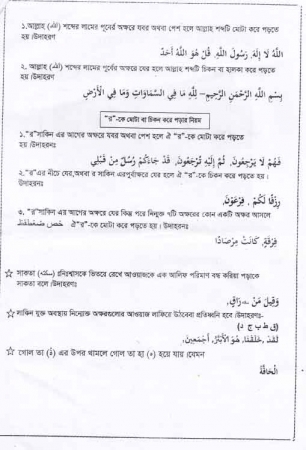 ১.আল্লাহ্ (الله) শব্দের লামের পূর্বের অক্ষরে যবর অথবা পেশ হলে আল্লাহ শব্দটি মোটা করে পড়তে
হয়।উদাহরণ
اللهُ لَا إِلٰهَ, رَسُولَ اللهِ, قُلْ هُوَ اللهُ أَحَدٌ
২. আল্লাহ (الله) শব্দের লামের পূর্বের অক্ষরে যের হলে আল্লাহ শব্দটি চিকন বা হালকা করে পড়তে
হয়।উদাহরণ
بِسْمِ اللهِ الرَّحْمٰنِ الرَّحِيْمِ – لِلّٰهِ مَا فِي السَّمَاوَاتِ وَمَا فِي الْأَرْضِ
"র"-কে মোটা বা চিকন করে পড়ার নিয়ম
১."র"সাকিন এর আগের অক্ষরে যবর অথবা পেশ হলে ঐ "র"-কে মোটা করে পড়তে
হয়।উদাহরনঃ
فَهُمْ لَا يَرْجِعُونَ, ثُمَّ إِلَيْهِ تُرْجَعُونَ, قَدْ جَاءَكُمْ رُسُلٌ مِنْ قَبْلِي
২."র"এর নীচে যের,অথবা র সাকিন এরপূর্বাক্ষরে যের হলে ঐ "র"-কে চিকন করে পড়তে হয়।
উদাহরনঃ
رِزْقًا لَكُمْ, فِرْعَوْنَ,
৩. "র"সাকিন এর আগের অক্ষরে যের কিন্তু পরে নিন্মুক্ত ৭টি অক্ষরের কোন একটি অক্ষর আসলে
ঐ "র"-কে মোটা করে পড়তে হয়। উদাহরনঃ خص ضغط قظ
فِرْقَةٍ, كَانَتْ مِرْصَادًا
☆ সাকতা (سكته) প্রঃনিশ্বাসকে ভিতরে রেখে আওয়াজকে এক আলিফ পরিমাণ বন্ধ করিয়া পড়াকে
সাকতা বলে।উদাহরণঃ
وَقِيلَ مَنْ ۜ رَاقٍ,
☆ সাকিন যুক্ত অবস্থায় নিন্মোক্ত অক্ষরগুলোর আওয়াজ লাফিয়ে উঠবেবা প্রতিধ্বনি হবে।উদাহরণঃ-
(ق ط ب ج د)
لَقَدْ, خَلَقْنَا, هُوَ الْأَبْتَرُ, أَجْمَعِينَ,
☆ গোল তা (ة) এর উপর থামলে গোল তা হা (ه) হয়ে যায়।যেমন
الْحَاقَّةُ